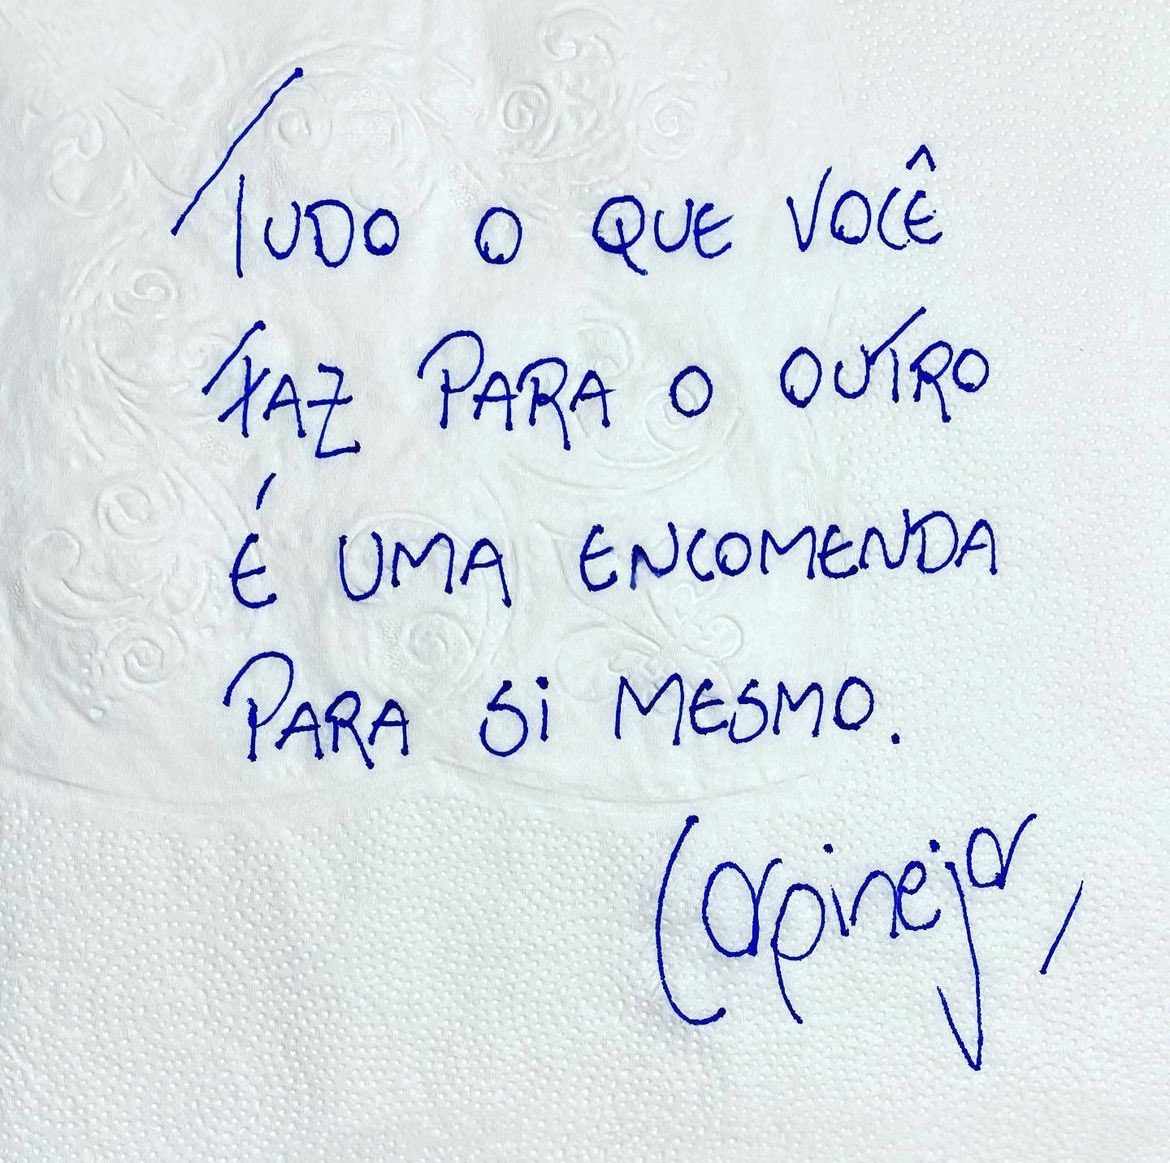 TUDO O QUE VOCÊ
FAZ PARA O OUTRO
É UMA ENCOMENDA
PARA SI MESMO.
Carpinejar